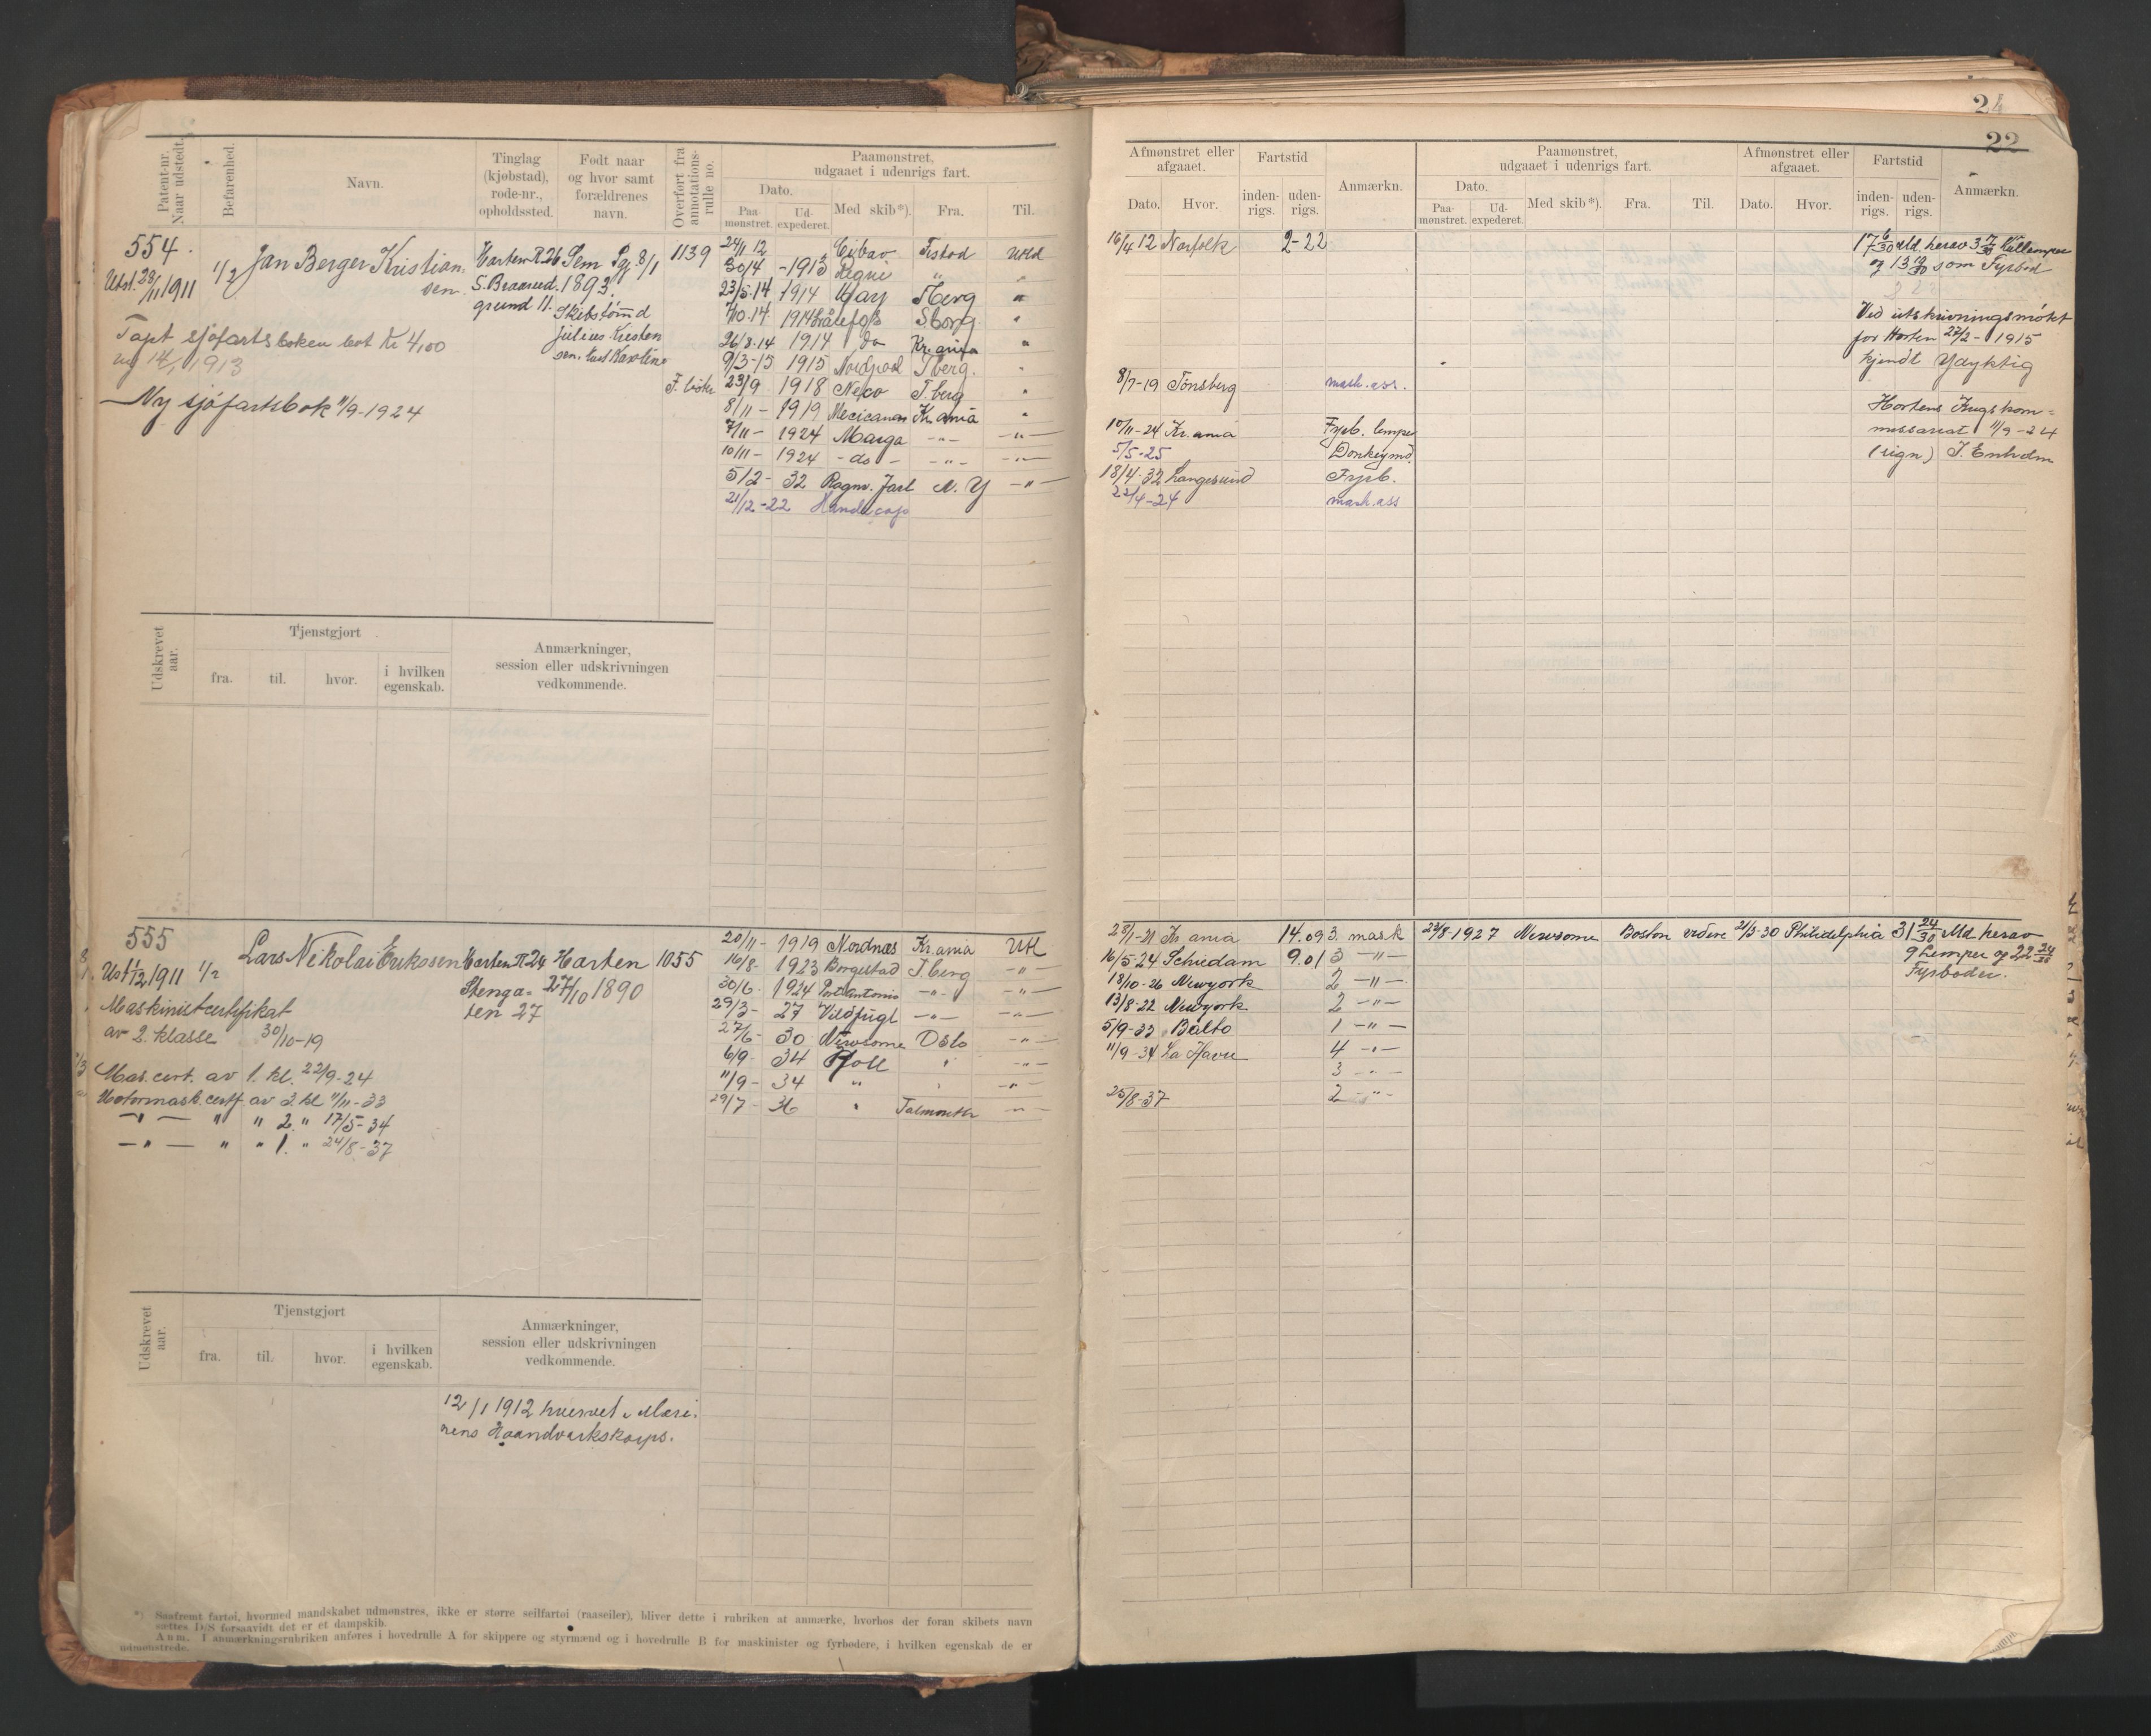 24
22
Patent-nr. Naar udstedt.
Befarenhed.
Navn.
Tinglag (kjøbstad), rode-nr., opholdssted.
Født naar og hvor samt forældrenes navn.
Overført fra annotations-rulle no.
Paamønstret, udgaaet i udenrigs fart.
Dato.
Paa-mønstret.
Ud-expederet.
Med skib*).
Fra.
Til.
Afmønstret eller afgaaet.
Dato.
Hvor.
Fartstid
inden-rigs.
uden-rigs.
Anmærkn.
Paamønstret, udgaaet i udenrigs fart.
Dato.
Paa-mønstret.
Ud-expederet.
Med skib*).
Fra.
Til.
Afmønstret eller afgaaet.
Dato.
Hvor.
Fartstid
inden-rigs.
uden-rigs.
Anmærkn.
554.
Utst. 28/11 1911
1/2
Jan Berger Kristian-
sen.
Horten R 26
S. Braarud.
grund 11.
Sem Pg. 8/1
1893.
Skibstømmd
Julius Kristen
sen.
Karoline
1139
Tapt sjøfartsboken bot Kr 4,00
ny 14/1 1913
Ny sjøfartsbok 11/9-1924
24/1 12 Fistad Uld
30/4 - 1913 "
23/5.14 1914 May "
7/10.14 1914 Sborg "
26/8.14 1914 do Kr.ania "
9/3-15 1915 Nordpol Tberg. "
23/9 1918 T.berg "
8/11 - 1919 Mexicanan Kr.ania "
7/11 - 1924 Marga -"- -"-
10/11 - 1924 - do - -"- -"-
5/2 - 32 Ragnv. Jarl N. Y -"-
21/12.-22
16/4 12 Norfolk 2-22
8/7-19 Tønsberg mask.ass.
10/11-24 Kr.ania Fyrb. lemper
5/5-25 Donkeymd.
18/4.32 Langesund Fyrb.
22/4-24 mask.ass
17 6/30 Md. herav
som Fyrbød
Ved utskrivningsmøtet
for Horten 27/2 - 1915
kjendt Udyktig
Hortens Krigskom-
missariat 11/9-24
(sign)
Udskrevet aar.
Tjenstgjort
fra.
til.
hvor.
i hvilken egenskab.
Anmærkninger, session eller udskrivningen vedkommende.
555
Utst 1/12 1911 1/2
Lars Nikolai Eriksen
Horten R 24
Stenga-
den 27
Horten
27/10 1890
1055
Maskinistcertifikat
av 2. klasse 30/10-19
Mas.cert. av 1. kl. 22/9-24
Motormask.certf. av 3 kl 11/11-33
-"- " " 2. " 17/5-34
-"- " " 1. " 24/8-37
20/11- 1919 Nordnæs Kr.ania Utl
16/8- 1923 Borgestad T.berg -"-
30/6- 1924 Port Antonio -"- -"-
29/3- 27 Vildfugl -"- -"-
27/6- 30 Newsome Oslo -"-
6/9- 34 " -"-
11/9- 34 " " -"-
29/7- 36 " Falmouth -"-
28/1-21 Kr.ania 14.09 3. mask
16/5-24 Schiedam 9.01 3 -"-
18/10-26 Newyork 2 -"-
13/8-22 Newyork 2 -"-
5/9-33 Balto 1 -"-
11/9-34 La Havre 4 -"-
3 -"-
25/8-37 2 -"-
23/8-1927 Newsome Boston videre 21/5-30 Philidelphia 31 24/30 Md. herav
9 Lemper og 22 24/30
Fyrbøder.
Udskrevet aar.
Tjenstgjort
fra.
til.
hvor.
i hvilken egenskab.
Anmærkninger, session eller udskrivningen vedkommende.
12/1 1912 hvervet i Mari-
nens Haandverkskorps.
*) Saafremt fartøi, hvormed mandskabet udmønstres, ikke er større seilfartøi (raaseiler), bliver dette i rubriken at anmærke, hvorhos der foran skibets navn
sættes D/S forsaavidt det er et dampskib.
Anm. I anmærkningsrubriken anføres i hovedrulle A for skippere og styrmænd og i hovedrulle B for maskinister og fyrbødere, i hvilken egenskab de er
udmønstrede.